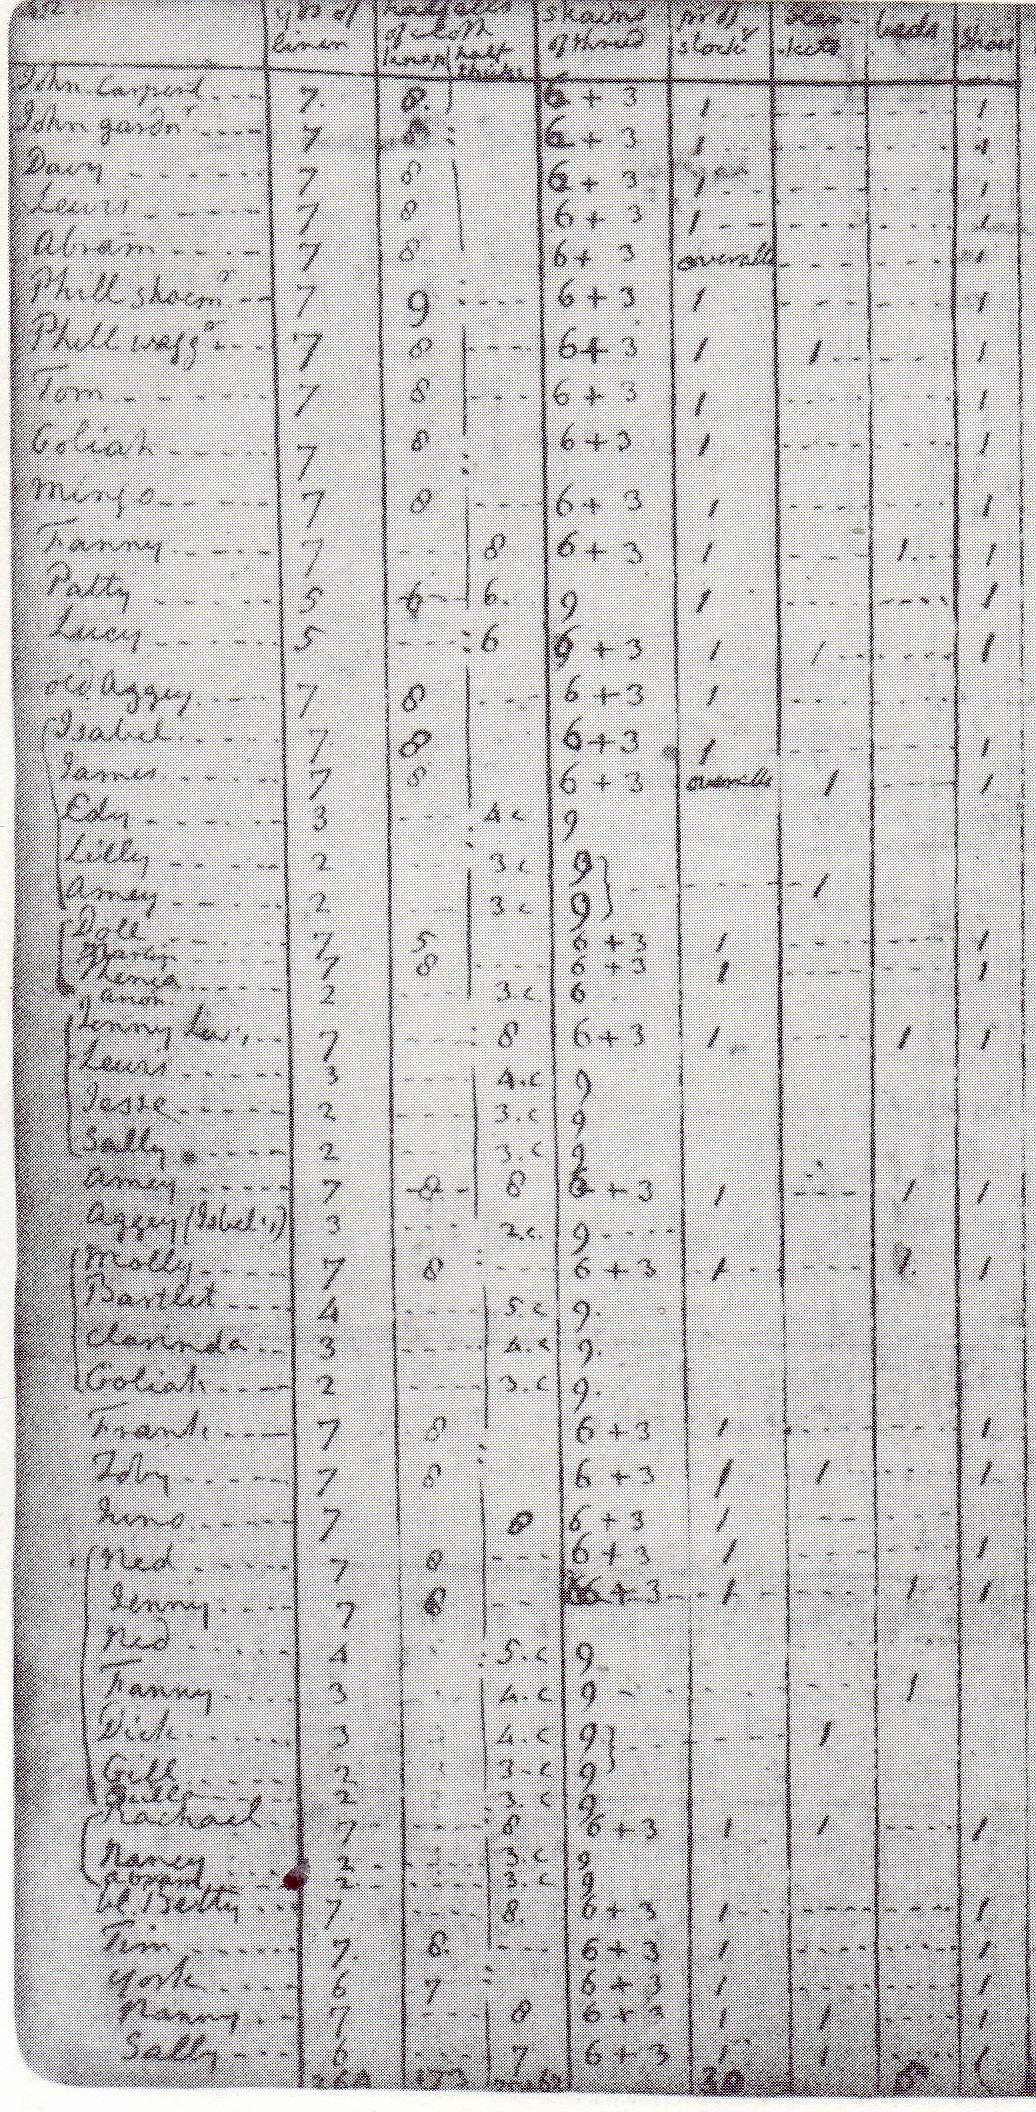 yds of linen half ells of cloth knap half thicks skains of thread pr of stocks blan-kets beds shoes
John Carpent. 7. 8. 6 + 3 1 1
John gardnr 7 8 6 + 3 1 1
Davy 7 8 6 + 3 1 1
Lewis 7 8 6 + 3 1
Abram 7 8 6 + 3 overalls 1
Phill shoemr 7 9 6 + 3 1 1
Phill waggr 7 8 6 + 3 1 1 1
Tom 7 8 6 + 3 1 1
Goliah 7 8 6 + 3 1 1
Mingo 7 8 6 + 3 1 1
Fanny 7 8 6 + 3 1 1 1
Patty 5 6 6. 9 1 1
Lucy 5 6 6 + 3 1 1 1
old Aggey 7 8 6 + 3 1
Isabel 7. 8 6 + 3 1 1
James 7 8 6 + 3 overalls 1 1
Edy 3 4 c 9
Lilly 2 3 c 9
Amey 2 3 c 9 1
Doll 7 5 6 + 3 1 1
Martin 7 8 6 + 3 1 1
anon. 2 3.c 6
Jenny Lew's 7 8 6 + 3 1 1 1
Lewis 3 4.c 9
Jesse 2 3.c 9
Sally 2 3.c 9
Amey 7 8 8 6 + 3 1 1 1
Aggey (Isbel's) 3 2.c. 9
Molly 7 8 6 + 3 1 1. 1
Bartlet 4 5.c 9.
Clarinda 3 4.c 9.
Goliah 2 3.c 9.
Frank 7 8 6 + 3 1 1
Toby 7 8 6 + 3 1 1 1
Juno 7 8 6 + 3 1
Ned 7 8 6 + 3 1 1
Jenny 7 8 6 + 3 1 1 1
Ned 4 5.c 9
Fanny 3 4.c 9 1
Dick 3 4.c 9 1
Gill 2 3-c 9
2 3.c 9
Rachael 7 8 6 + 3 1 1 1
Nancy 2 3.c 9
Abram 2 3.c 9
Betty 7 8. 6 + 3 1 1
Tim 7. 8. 6 + 3 1 1
York 6 7 6 + 3 1 1
Nanny 7 8 6 + 3 1 1 1
Sally 6 7 6 + 3 1 1 1